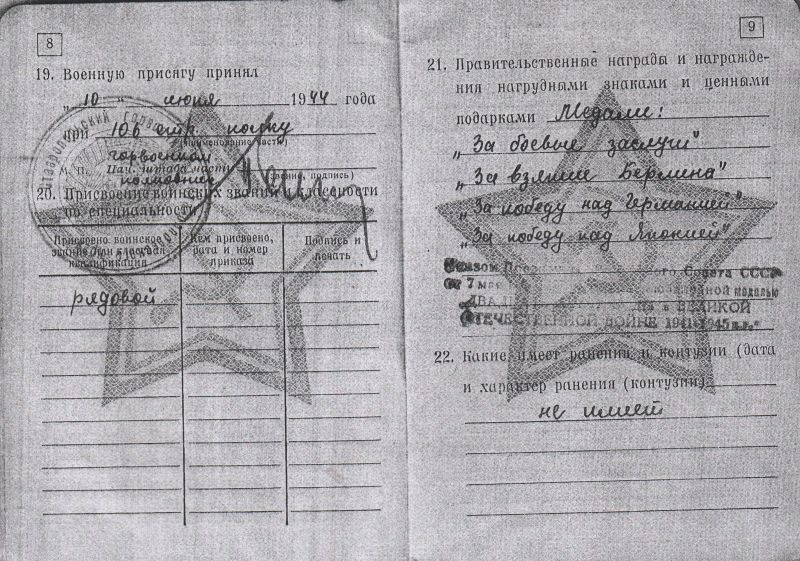 8
19. Военную присягу принял
„ 10 " июня 1944 года
при 106 стр. полку
(наименование части)
горвоенком
М. П. Нач. штаба части
полковник
(звание, подпись)
20. Присвоение воинских званий и классности
по специальности
Присвоено воинское звание или классная квалификация
Кем присвоено, дата и номер приказа
Подпись и печать
рядовой
9
21. Правительственные награды и награжде-
ния нагрудными знаками и ценными
подарками Медали:
„За боевые заслуги"
„За взятие Берлина"
„За победу над Германией"
„За победу над Японией"
Указом През Совета СССР
от 7 мая юбилейной медалью
ДВАД В ВЕЛИКОЙ
ОТЕЧЕСТВЕННОЙ ВОЙНЕ 1941-1945 г.г."
22. Какие имеет ранения и контузии (дата
и характер ранения (контузии)
не имеет